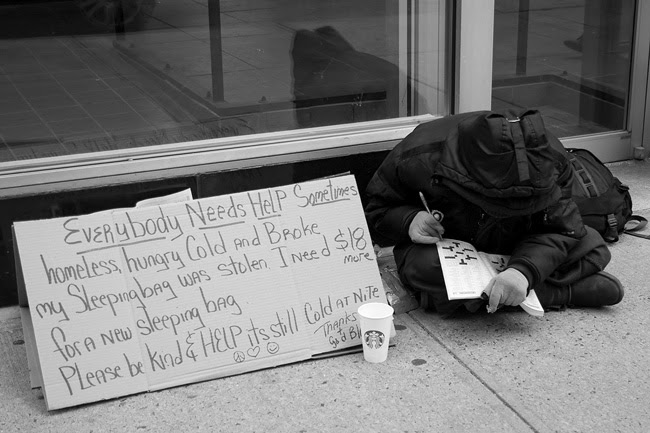 Everybody Needs Help Sometimes
homeless, hungry Cold and Broke
my Sleepingbag was stolen. I need $18
more
for a new sleeping bag
Please be Kind & HELP its still Cold at Nite
Thanks